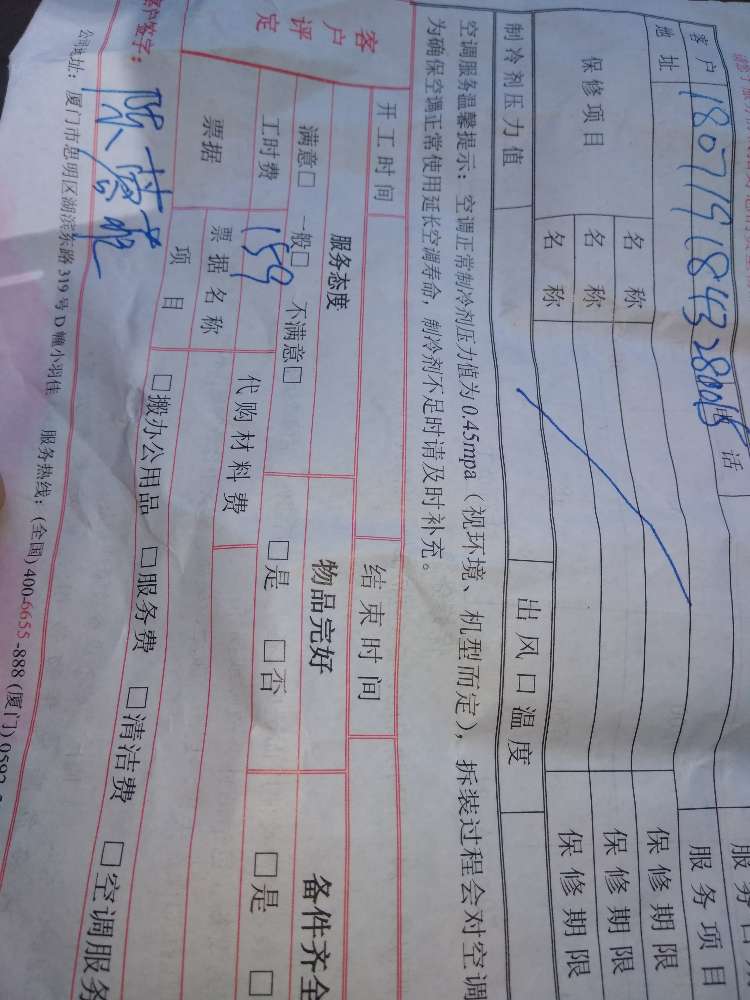 客户 18071918432800015 电话
地址 服务项目
保修项目 名称 保修期限
名称 保修期限
名称 保修期限
制冷剂压力值 出风口温度
空调服务温馨提示：空调正常制冷剂压力值为0.45mpa（视环境、机型而定），拆装过程会对空调
为确保空调正常使用延长空调寿命，制冷剂不足时请及时补充。
开工时间 结束时间
客户评定 服务态度 物品完好 备件齐全
满意□ 一般□ 不满意□ □是 □否 □是 □
工时费 159 代购材料费
票据 票据名称
项目 □搬办公用品 □服务费 □清洁费 □空调服务
客户签字：陈
公司地址：厦门市思明区湖滨东路319号D幢小羽佳 服务热线：(全国)400-6655-888 (厦门)0592